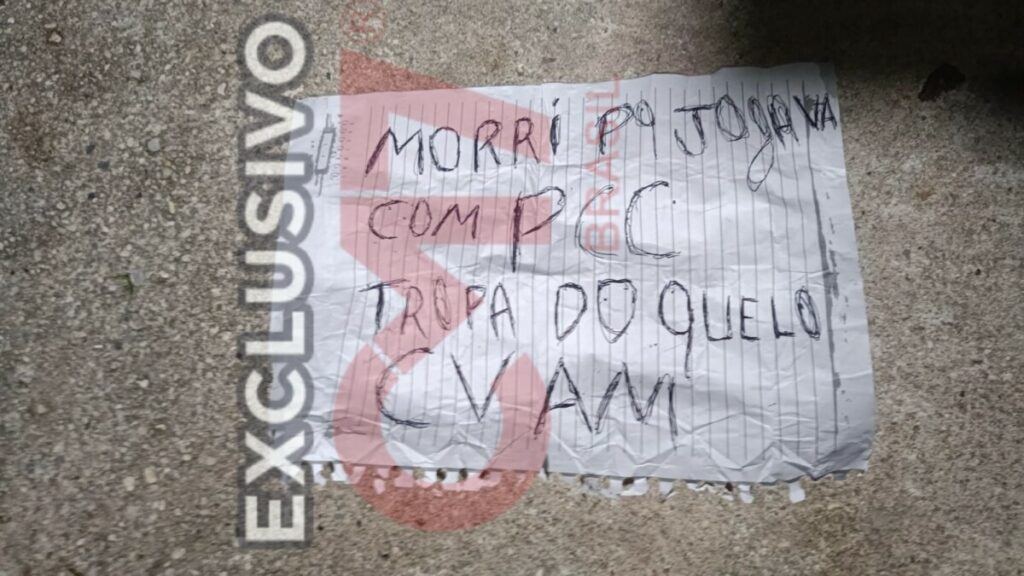 MORRi PQ JOgAVA
COM PCC
TROPA DO QUELO
CVAM
EXCLUSIVO
BRASIL